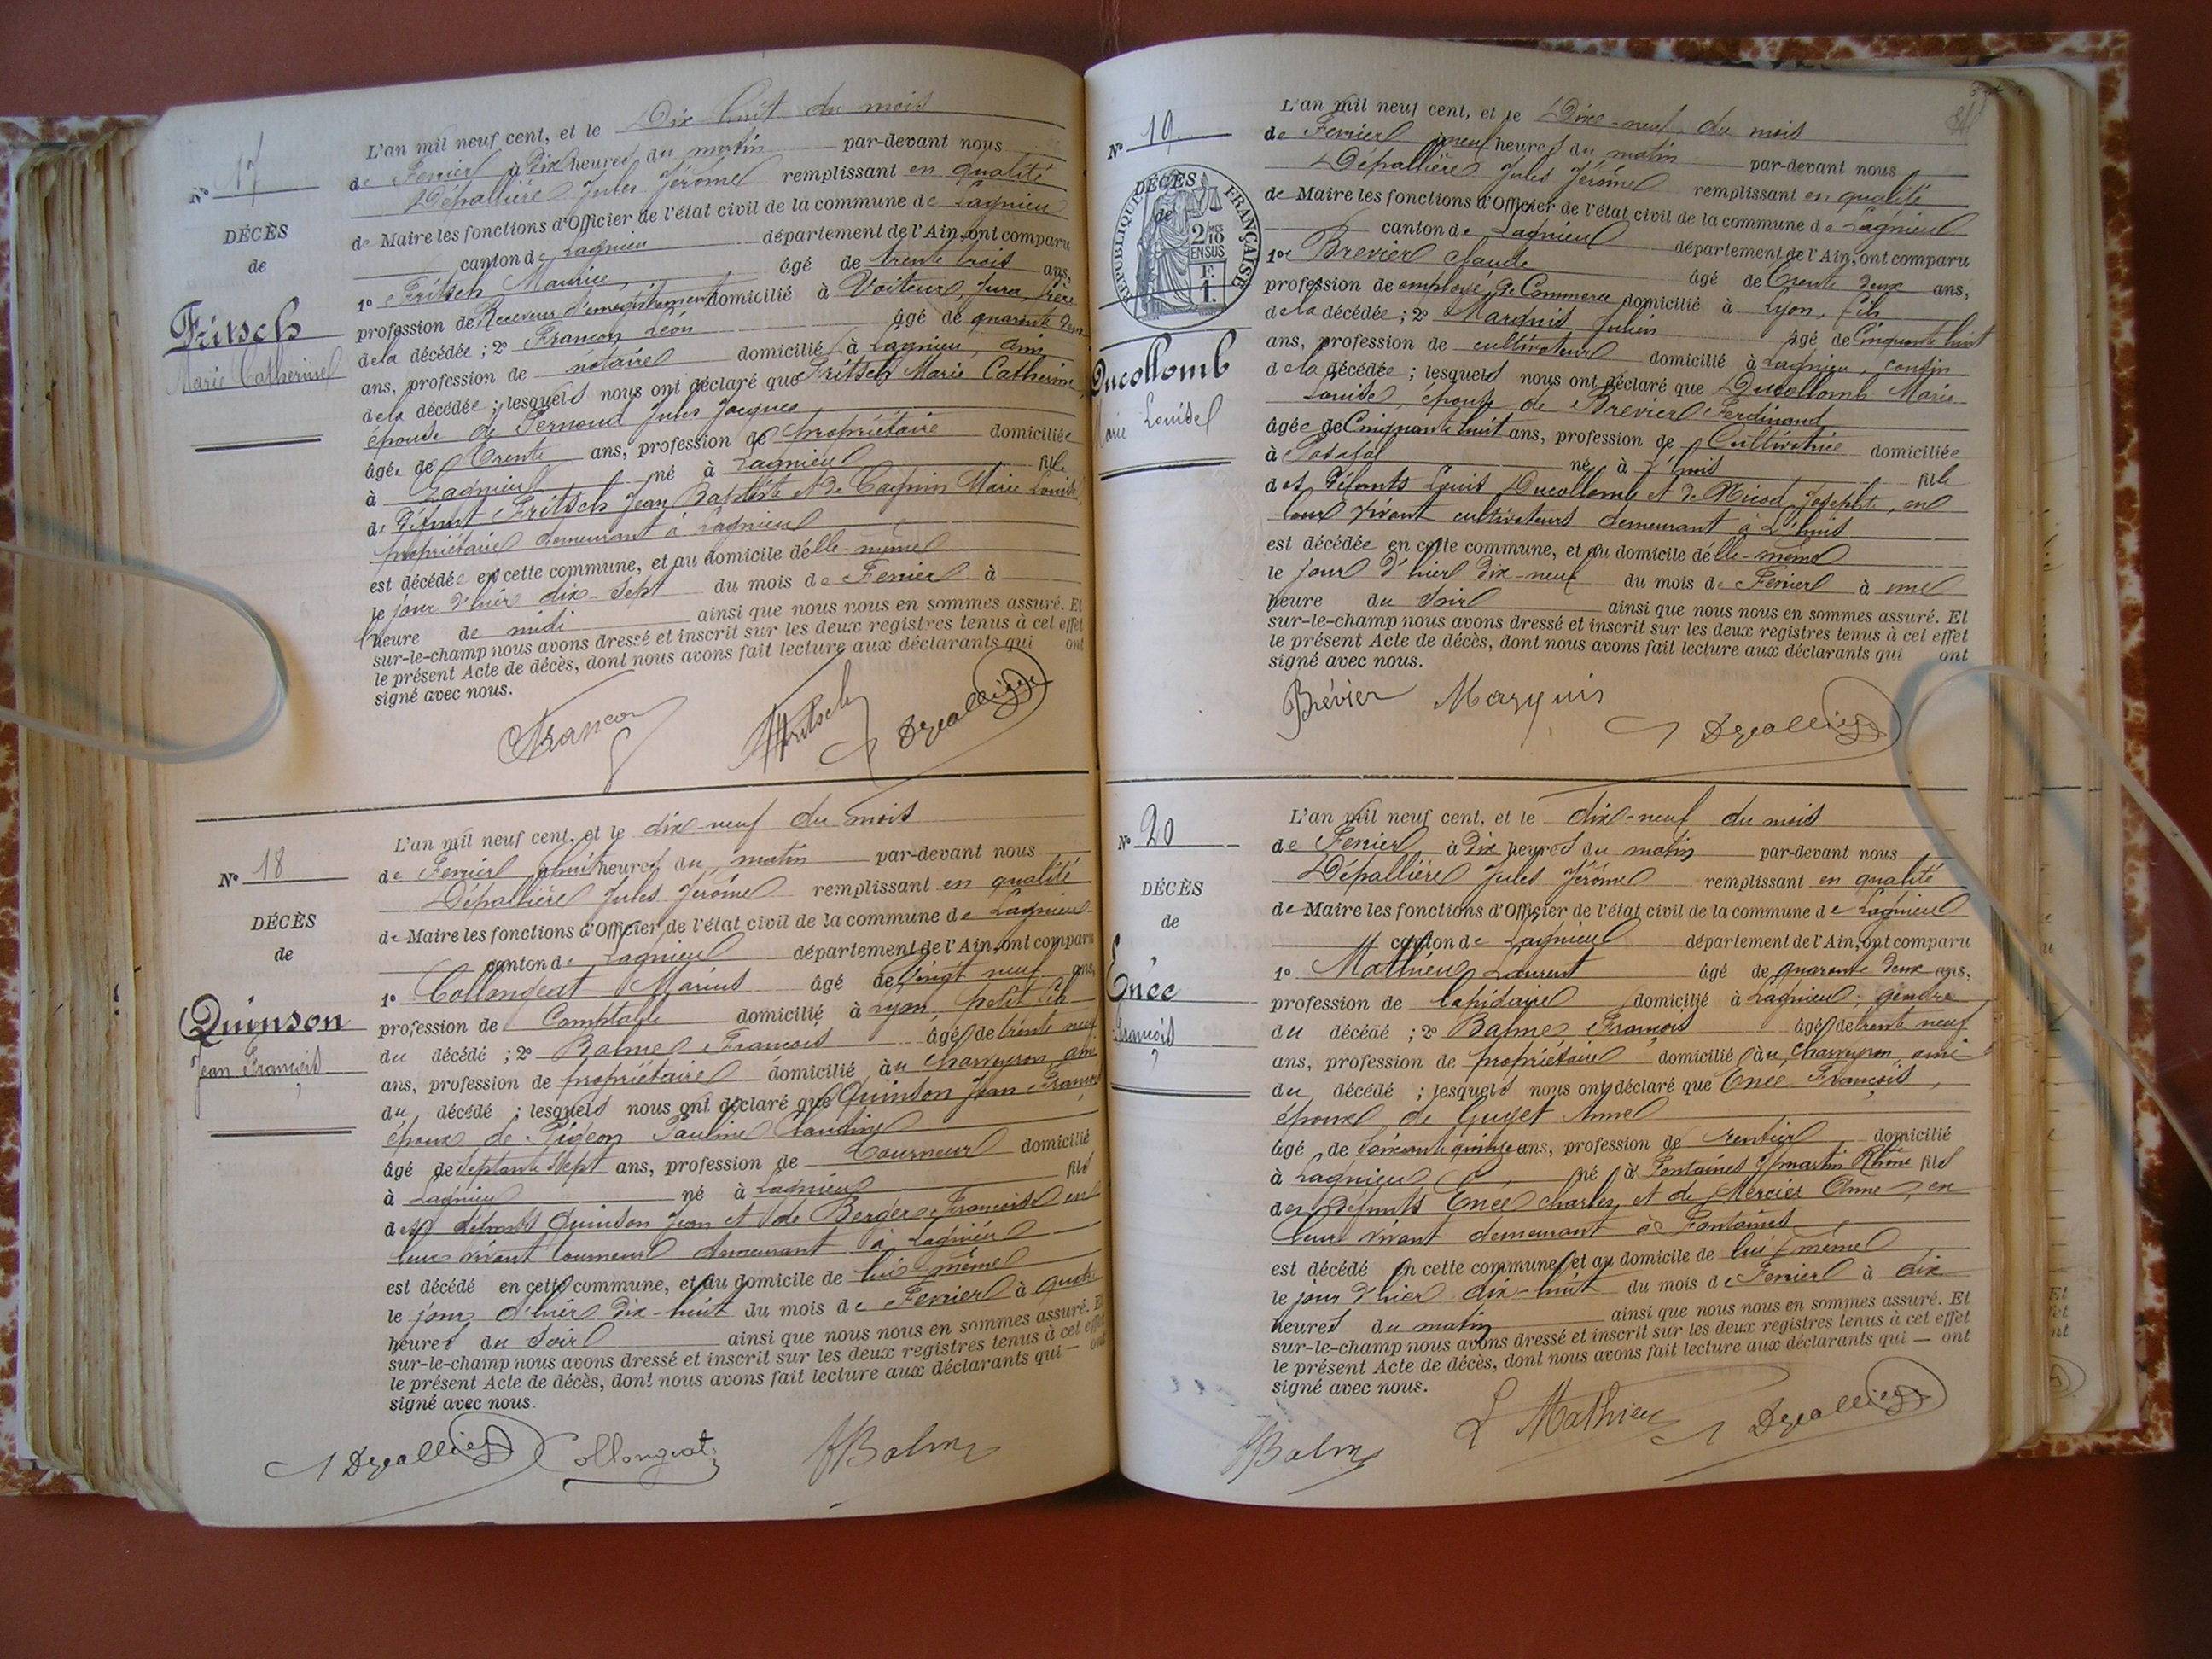 N° 17
DÉCÈS
de
Fritsch
Marie Catherine
L'an mil neuf cent, et le Dix-huit du mois
de Fevrier à Dix heures du matin par-devant nous
Dépallière Jules Jérôme remplissant en qualité
de Maire les fonctions d'Officier de l'état civil de la commune de Lagnieu
canton de Lagnieu département de l'Ain, ont comparu
1° Fritsch Maurice, âgé de trente trois ans,
profession de Receveur d'enregistrement domicilié à Voiteur, Jura, frère
de la décédée ; 2° Francon Léon âgé de quarante deux
ans, profession de notaire domicilié à Lagnieu, ami
de la décédée ; lesquels nous ont déclaré que Fritsch Marie Catherine,
épouse de Pernoud Jules Jacques
âgée de Trente ans, profession de propriétaire domiciliée
à Lagnieu né à Lagnieu fille
de Défunt Fritsch Jean Baptiste et de Marie Louise,
propriétaire demeurant à Lagnieu
est décédée en cette commune, et au domicile d'elle-même
le jour d'hier dix-sept du mois de Fevrier à
heure de midi ainsi que nous nous en sommes assuré. Et
sur-le-champ nous avons dressé et inscrit sur les deux registres tenus à cet effet
le présent Acte de décès, dont nous avons fait lecture aux déclarants qui ont
signé avec nous.
Francon Fritsch Depallière
N° 18
DÉCÈS
de
Quinson
Jean François
L'an mil neuf cent, et le dix-neuf du mois
de Fevrier à huit heures du matin par-devant nous
Dépallière Jules Jérôme remplissant en qualité
de Maire les fonctions d'Officier de l'état civil de la commune de Lagnieu
canton de Lagnieu département de l'Ain, ont comparu
1° Collongeat Marius âgé de vingt neuf ans,
profession de Comptable domicilié à Lyon, petit fils
du décédé ; 2° Balme François âgé de trente neuf
ans, profession de propriétaire domicilié au Charveyron, ami
du décédé ; lesquels nous ont déclaré que Quinson Jean François,
époux de Pigeon Pauline Claudine
âgé de Septante sept ans, profession de Tourneur domicilié
à Lagnieu né à Lagnieu fils
des défunts Quinson Jean et de Berger Françoise en
leur vivant tourneur demeurant à Lagnieu
est décédé en cette commune, et au domicile de lui-même
le jour d'hier dix-huit du mois de Fevrier à quatre
heures du Soir ainsi que nous nous en sommes assuré. Et
sur-le-champ nous avons dressé et inscrit sur les deux registres tenus à cet effet
le présent Acte de décès, dont nous avons fait lecture aux déclarants qui — ont
signé avec nous.
Depallière Collongeat Balme
N° 19
DÉCÈS
de
RÉPUBLIQUE FRANÇAISE
2/10 EN SUS
F. 1.
Ducollomb
Marie Louise
L'an mil neuf cent, et le Dix-neuf du mois
de Fevrier à neuf heures du matin par-devant nous
Dépallière Jules Jérôme remplissant en qualité
de Maire les fonctions d'Officier de l'état civil de la commune de Lagnieu
canton de Lagnieu département de l'Ain, ont comparu
1° Brevier Claude âgé de Trente deux ans,
profession de employé de Commerce domicilié à Lyon, fils
de la décédée ; 2° Marquis Julien âgé de Cinquante huit
ans, profession de cultivateur domicilié à Lagnieu, cousin
de la décédée ; lesquels nous ont déclaré que Ducollomb Marie
Louise, épouse de Brevier Ferdinand
âgée de Cinquante huit ans, profession de Cultivatrice domiciliée
à Posafol né à L'huis fille
des Défunts Louis Ducollomb et de Nicod Josephte, en
leur vivant cultivateurs demeurant à L'huis
est décédée en cette commune, et au domicile d'elle-même
le jour d'hier dix-neuf du mois de Fevrier à une
heure du Soir ainsi que nous nous en sommes assuré. Et
sur-le-champ nous avons dressé et inscrit sur les deux registres tenus à cet effet
le présent Acte de décès, dont nous avons fait lecture aux déclarants qui ont
signé avec nous.
Brévier Marquis Depallière
N° 20
DÉCÈS
de
Enée
François
L'an mil neuf cent, et le dix-neuf du mois
de Fevrier à Dix heures du matin par-devant nous
Dépallière Jules Jérôme remplissant en qualité
de Maire les fonctions d'Officier de l'état civil de la commune de Lagnieu
canton de Lagnieu département de l'Ain, ont comparu
1° Mathieu Laurent âgé de quarante deux ans,
profession de lapidaire domicilié à Lagnieu, gendre
du décédé ; 2° Balme François âgé de trente neuf
ans, profession de propriétaire domicilié au Charveyron, ami
du décédé ; lesquels nous ont déclaré que Enée François,
époux de Guyet Anne
âgé de soixante quinze ans, profession de rentier domicilié
à Lagnieu né à Fontaines St martin Rhône fils
des Défunts Enée Charles et de Mercier Anne, en
leur vivant demeurant à Fontaines
est décédé en cette commune, et au domicile de lui même
le jour d'hier dix-huit du mois de Fevrier à dix
heures du matin ainsi que nous nous en sommes assuré. Et
sur-le-champ nous avons dressé et inscrit sur les deux registres tenus à cet effet
le présent Acte de décès, dont nous avons fait lecture aux déclarants qui — ont
signé avec nous.
Balme L Mathieu Depallière